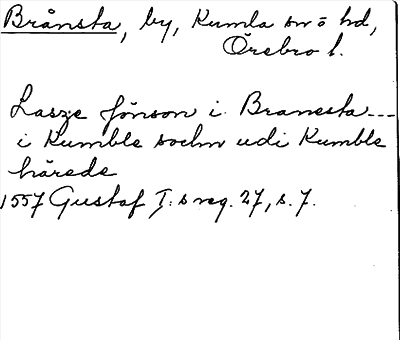 Brånsta, by, Kumla sn o hd,
Örebro l.
Lasze Jönson i Branesta---
i Kumble sochn udi Kumble
härede
1557 Gustaf I:s reg. 27, s. 7.